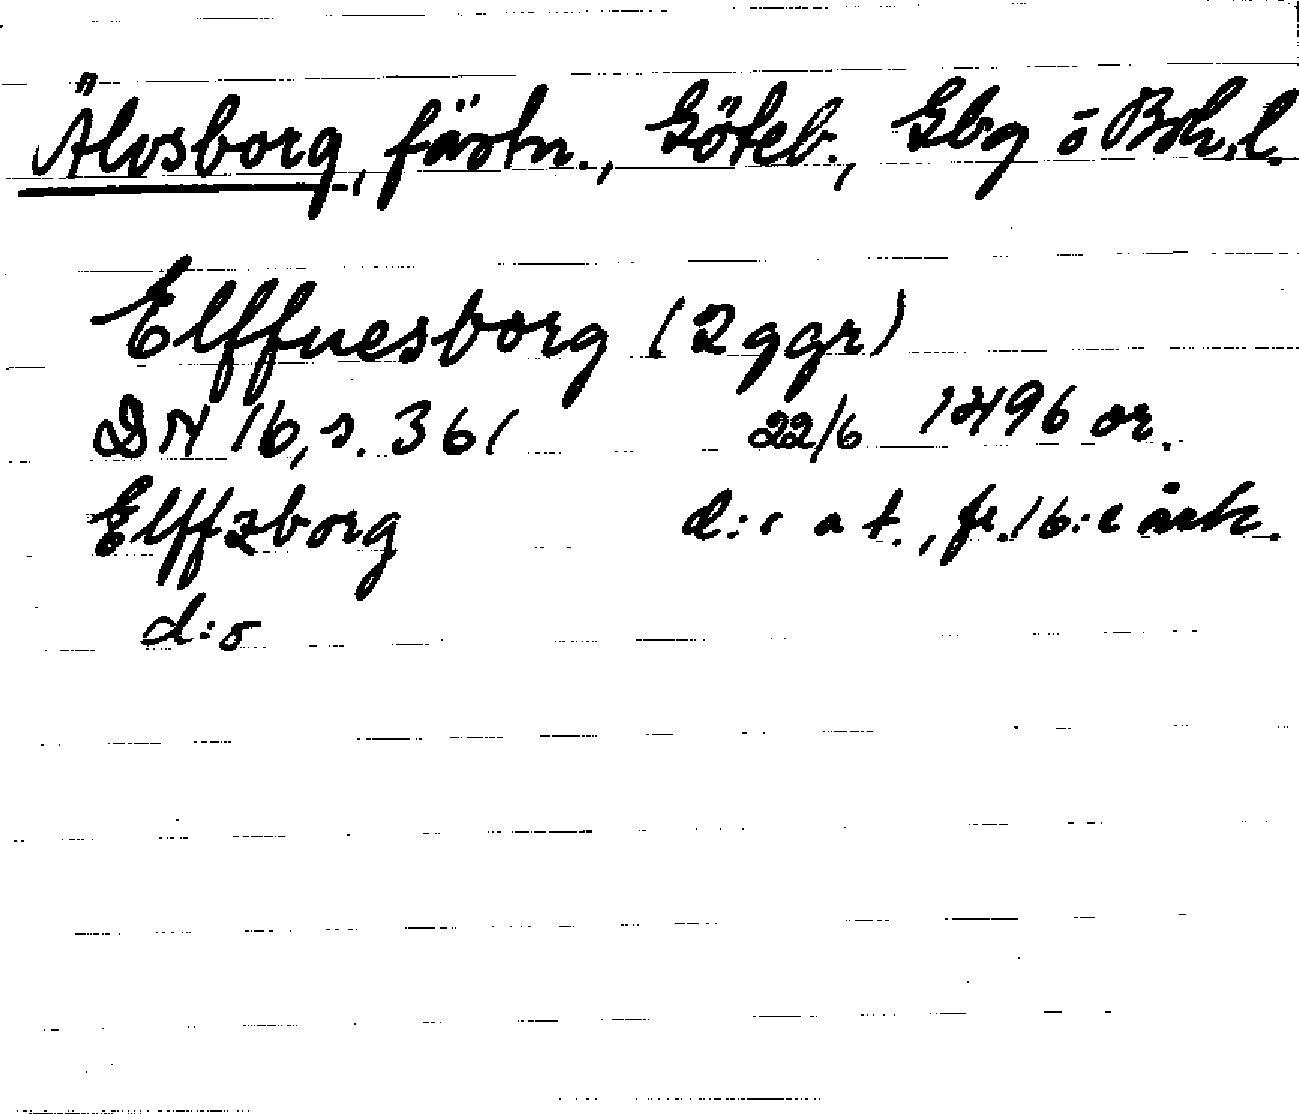 Älvsborg, fästn., Göteb., Gbg o Boh. l.
Elffuesborg (2 ggr)
DN 16, s. 361 22/6 1496 or.
Elffzborg d:r a t., fr. 16:e årh.
d:o